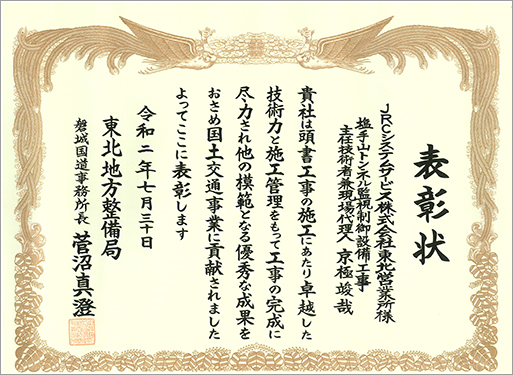 表彰状
JRCシステムサービス株式会社東北営業所様
塩手山トンネル監視制御設備工事
主任技術者兼現場代理人 京極竣哉
貴社は頭書工事の施工にあたり卓越した
技術力と施工管理をもって工事の完成に
尽力され他の模範となる優秀な成果を
おさめ国土交通事業に貢献されました
よってここに表彰します
令和二年七月三十日
東北地方整備局
磐城国道事務所長 菅沼真澄